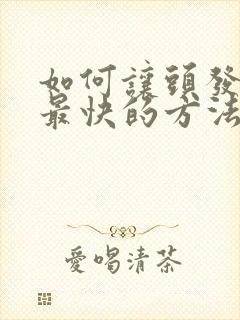 如何讓頭發
最快的方法
愛喝清茶